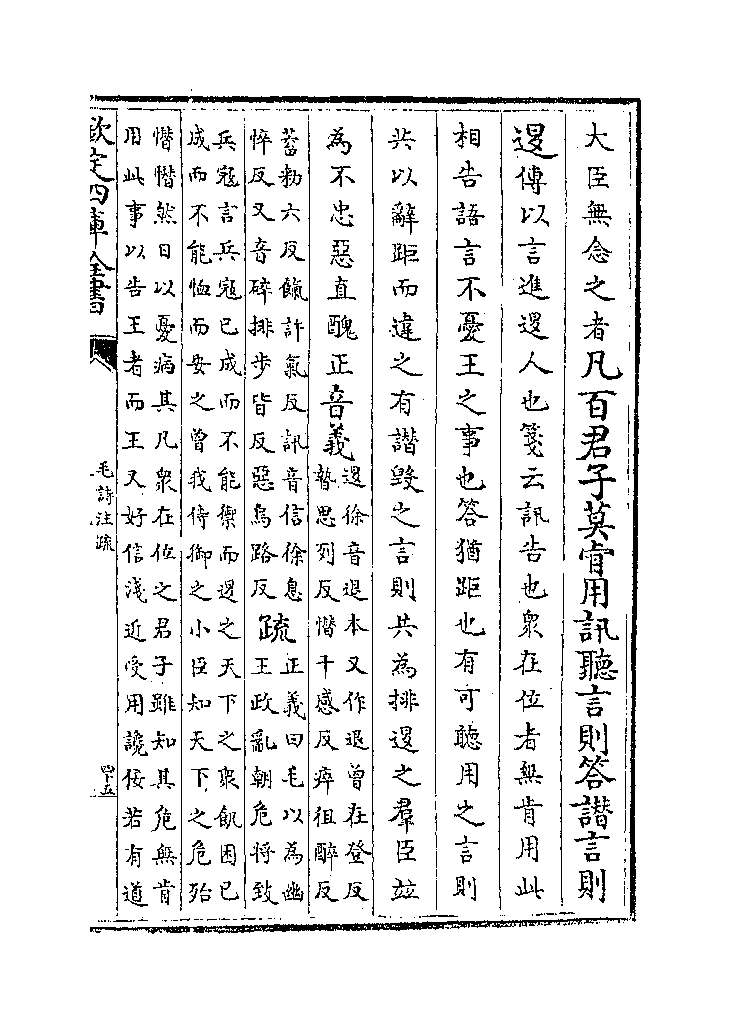 大臣無念之者凡百君子莫肯用訊聽言則答譛言則
𨓆傳以言進𨓆人也箋云訊告也衆在位者無肯用此
相告語言不憂王之事也答猶距也有可聽用之言則
共以辭距而違之有譛毀之言則共為排𨓆之羣臣竝
為不忠惡直醜正音義
𨓆徐音退本又作退曾在登反
暬思列反憯千感反瘁徂醉反
蓄勑六反餼許氣反訊音信徐息
悴反又音碎排步皆反惡烏路反
疏
正義曰毛以為幽
王政亂朝危將致
兵寇言兵寇已成而不能禦而𨓆之天下之衆飢困已
成而不能恤而安之曾我侍御之小臣知天下之危殆
憯憯然日以憂病其凡衆在位之君子雖知其危無肯
用此事以告王者而王又好信淺近受用讒佞若有道
欽定四庫全書
毛詩注疏
四十五